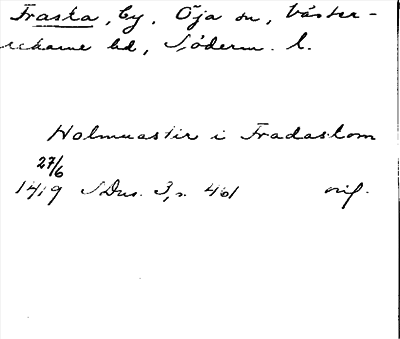 Fraska, by, Öja sn, Väster-
rekarne hd, Söderm. l.
Holmuastir i Fradaskom
27/6
1419 SDns. 3, s. 461 orig.